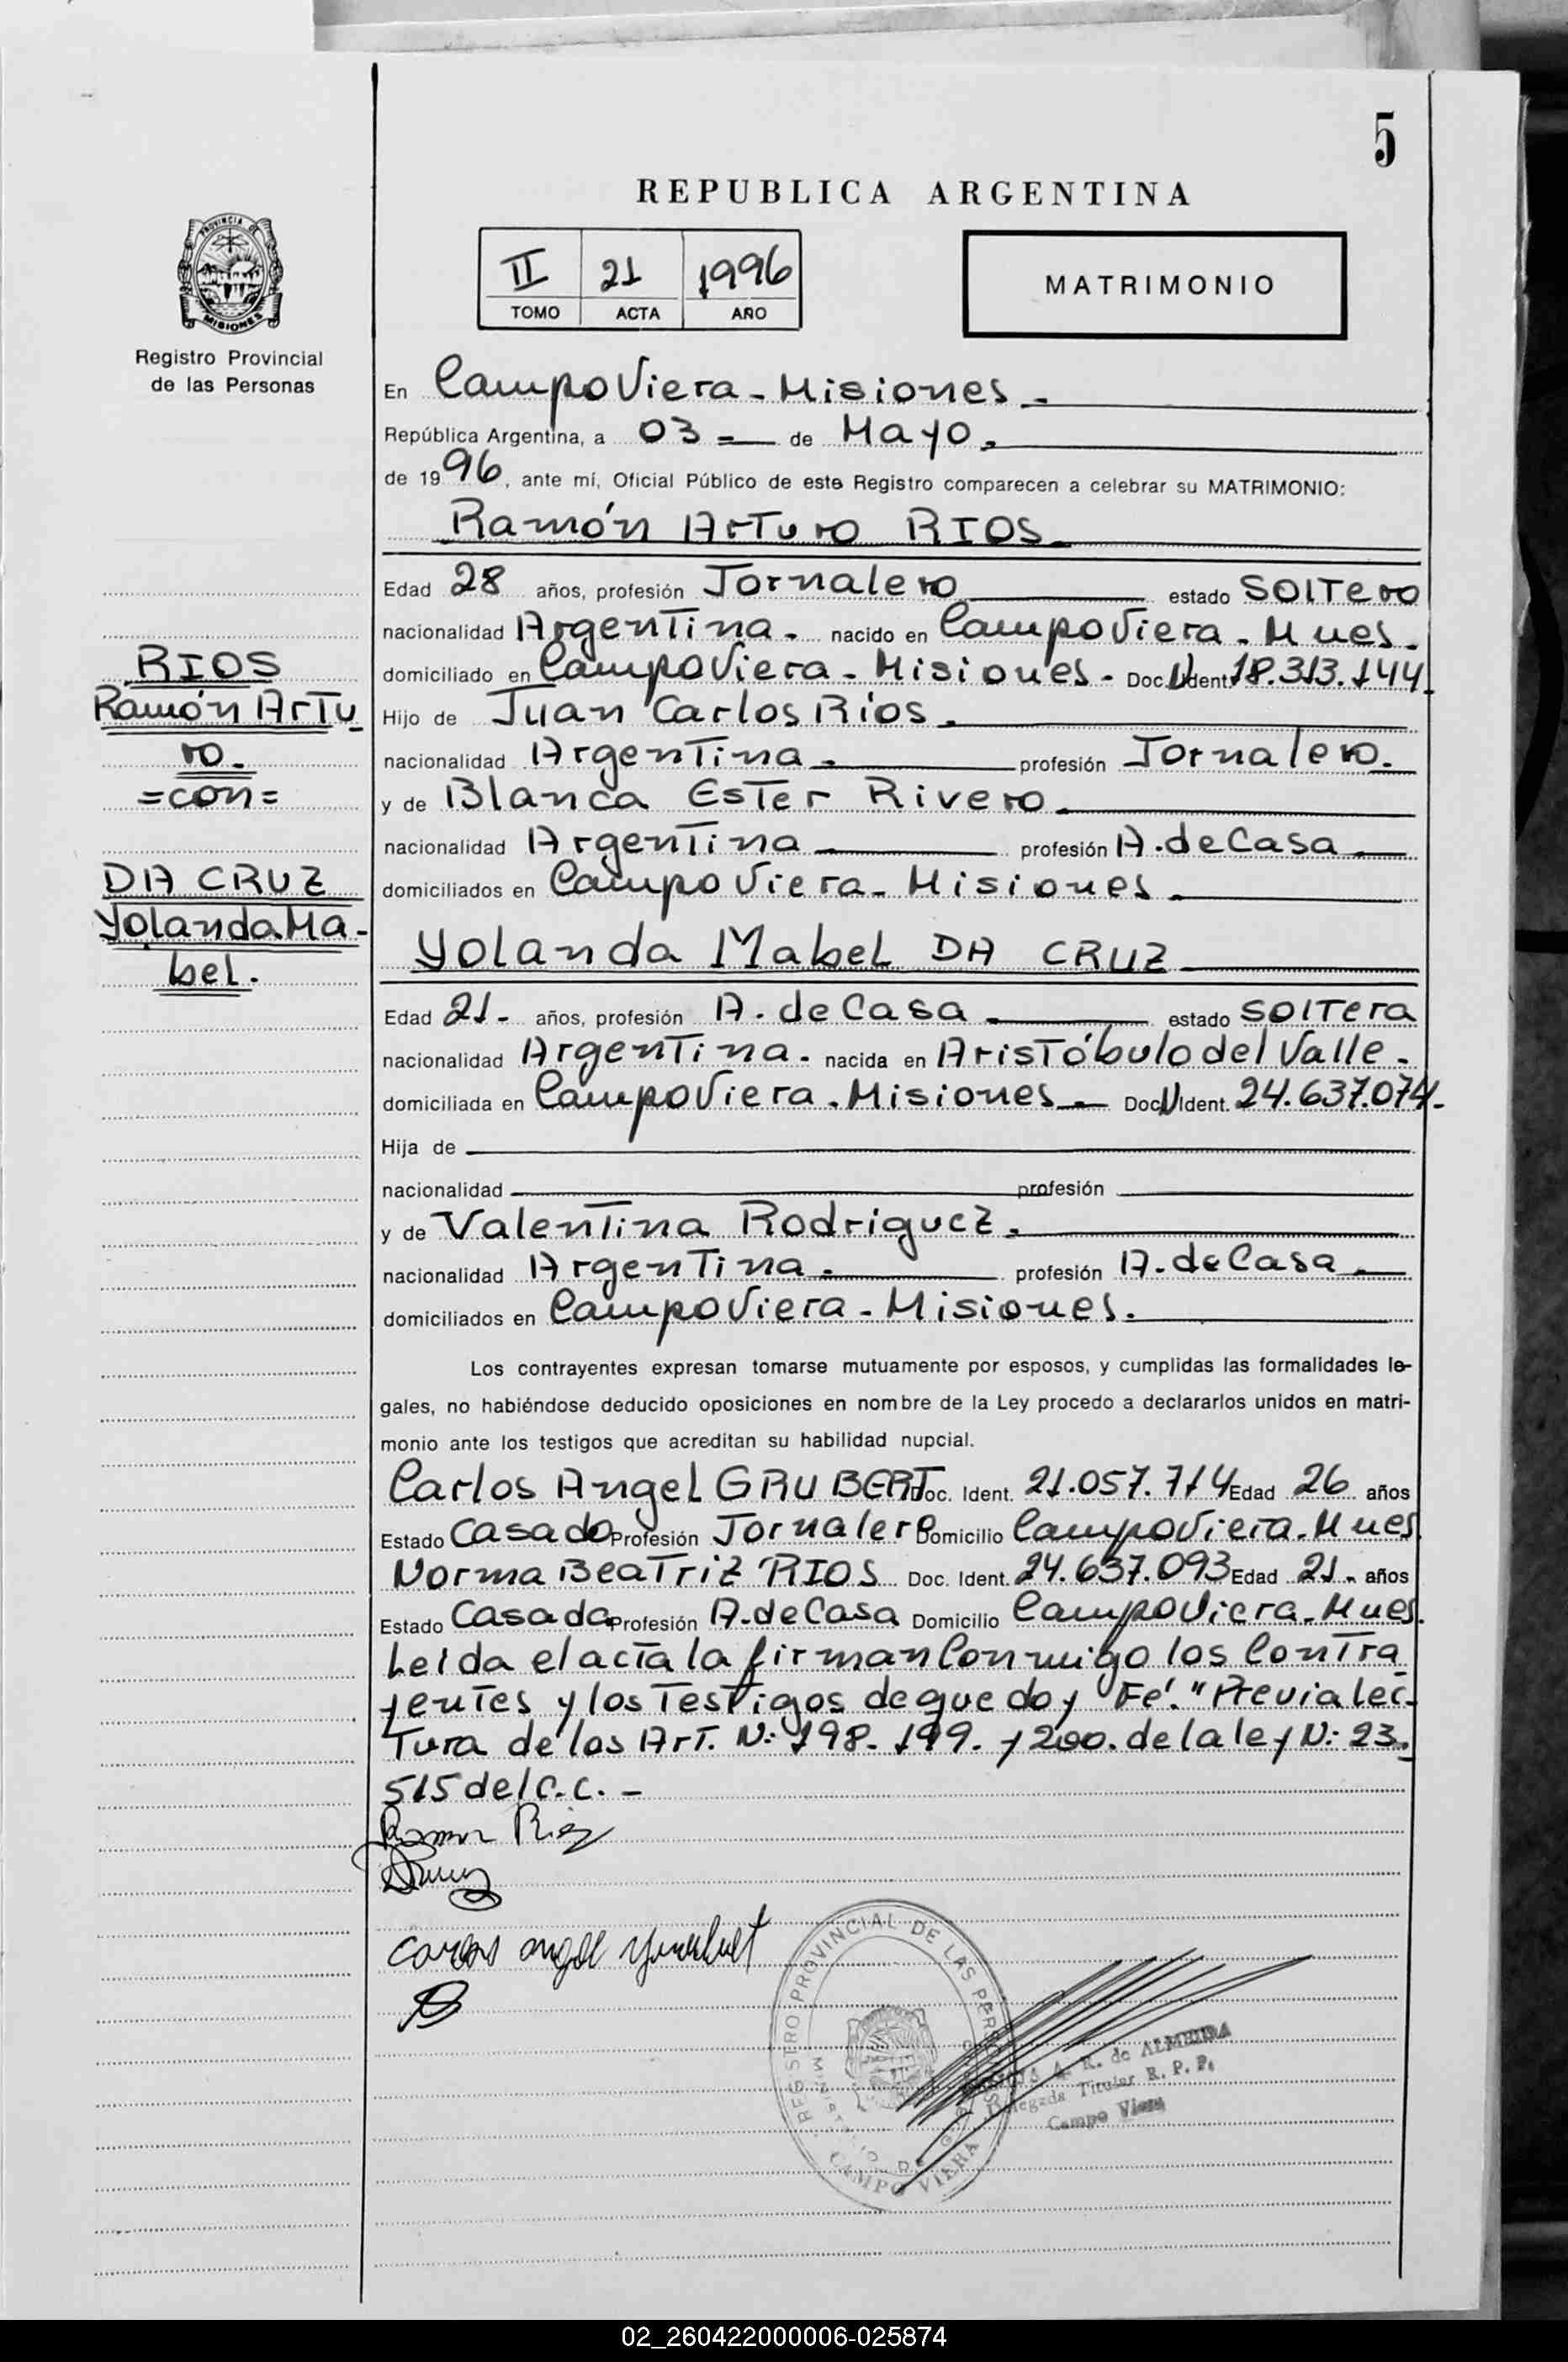 5
REPUBLICA ARGENTINA
II 21 1996
TOMO ACTA AÑO
MATRIMONIO
PROVINCIA DE
MISIONES
Registro Provincial
de las Personas
En Campo Viera - Misiones.
República Argentina, a 03 = de Mayo.
de 1996, ante mí, Oficial Público de este Registro comparecen a celebrar su MATRIMONIO:
Ramón Arturo RIOS
Edad 28 años, profesión Jornalero estado SOlTero
nacionalidad Argentina. nacido en Campo Viera - Mnes.
domiciliado en Campo Viera - Misiones - Doc. N Ident. 18.313.144.
Hijo de Juan Carlos Ríos.
nacionalidad Argentina. profesión Jornalero.
y de Blanca Ester Rivero.
nacionalidad Argentina profesión A. de Casa
domiciliados en Campo Viera - Misiones.
Yolanda Mabel DA CRUZ
Edad 21- años, profesión A. de Casa estado SOlTera
nacionalidad Argentina. nacida en Aristóbulo del Valle.
domiciliada en Campo Viera. Misiones Doc. N Ident. 24.637.074.
Hija de
nacionalidad profesión
y de Valentina Rodriguez.
nacionalidad Argentina. profesión A. de Casa
domiciliados en Campo Viera - Misiones.
RIOS
Ramón Artu
ro.
=con=
DA CRUZ
Yolanda Ma-
bel.
Los contrayentes expresan tomarse mutuamente por esposos, y cumplidas las formalidades le-
gales, no habiéndose deducido oposiciones en nombre de la Ley procedo a declararlos unidos en matri-
monio ante los testigos que acreditan su habilidad nupcial.
Carlos Angel GRUBERT Doc. Ident. 21.057.714 Edad 26 años
Estado Casado Profesión Jornalero Domicilio Campo Viera. Mnes
Norma Beatriz RIOS Doc. Ident. 24.637.093 Edad 21- años
Estado Casada Profesión A. de Casa Domicilio Campo Viera. Mnes.
Leída el acta la firman Conmigo los Contra
yentes y los Testigos de que doy "Fé". "Previa lec-
tura de los Art. N: 198. 199. y 200. de la ley N: 23.
515 del C.C. -
Ramon Rios
Carlos angel
REGISTRO PROVINCIAL DE LAS PERSONAS
CAMPO VIERA
A. R. de ALMEIDA
Delegada Titular R. P. P.
Campo Viera
02_260422000006-025874